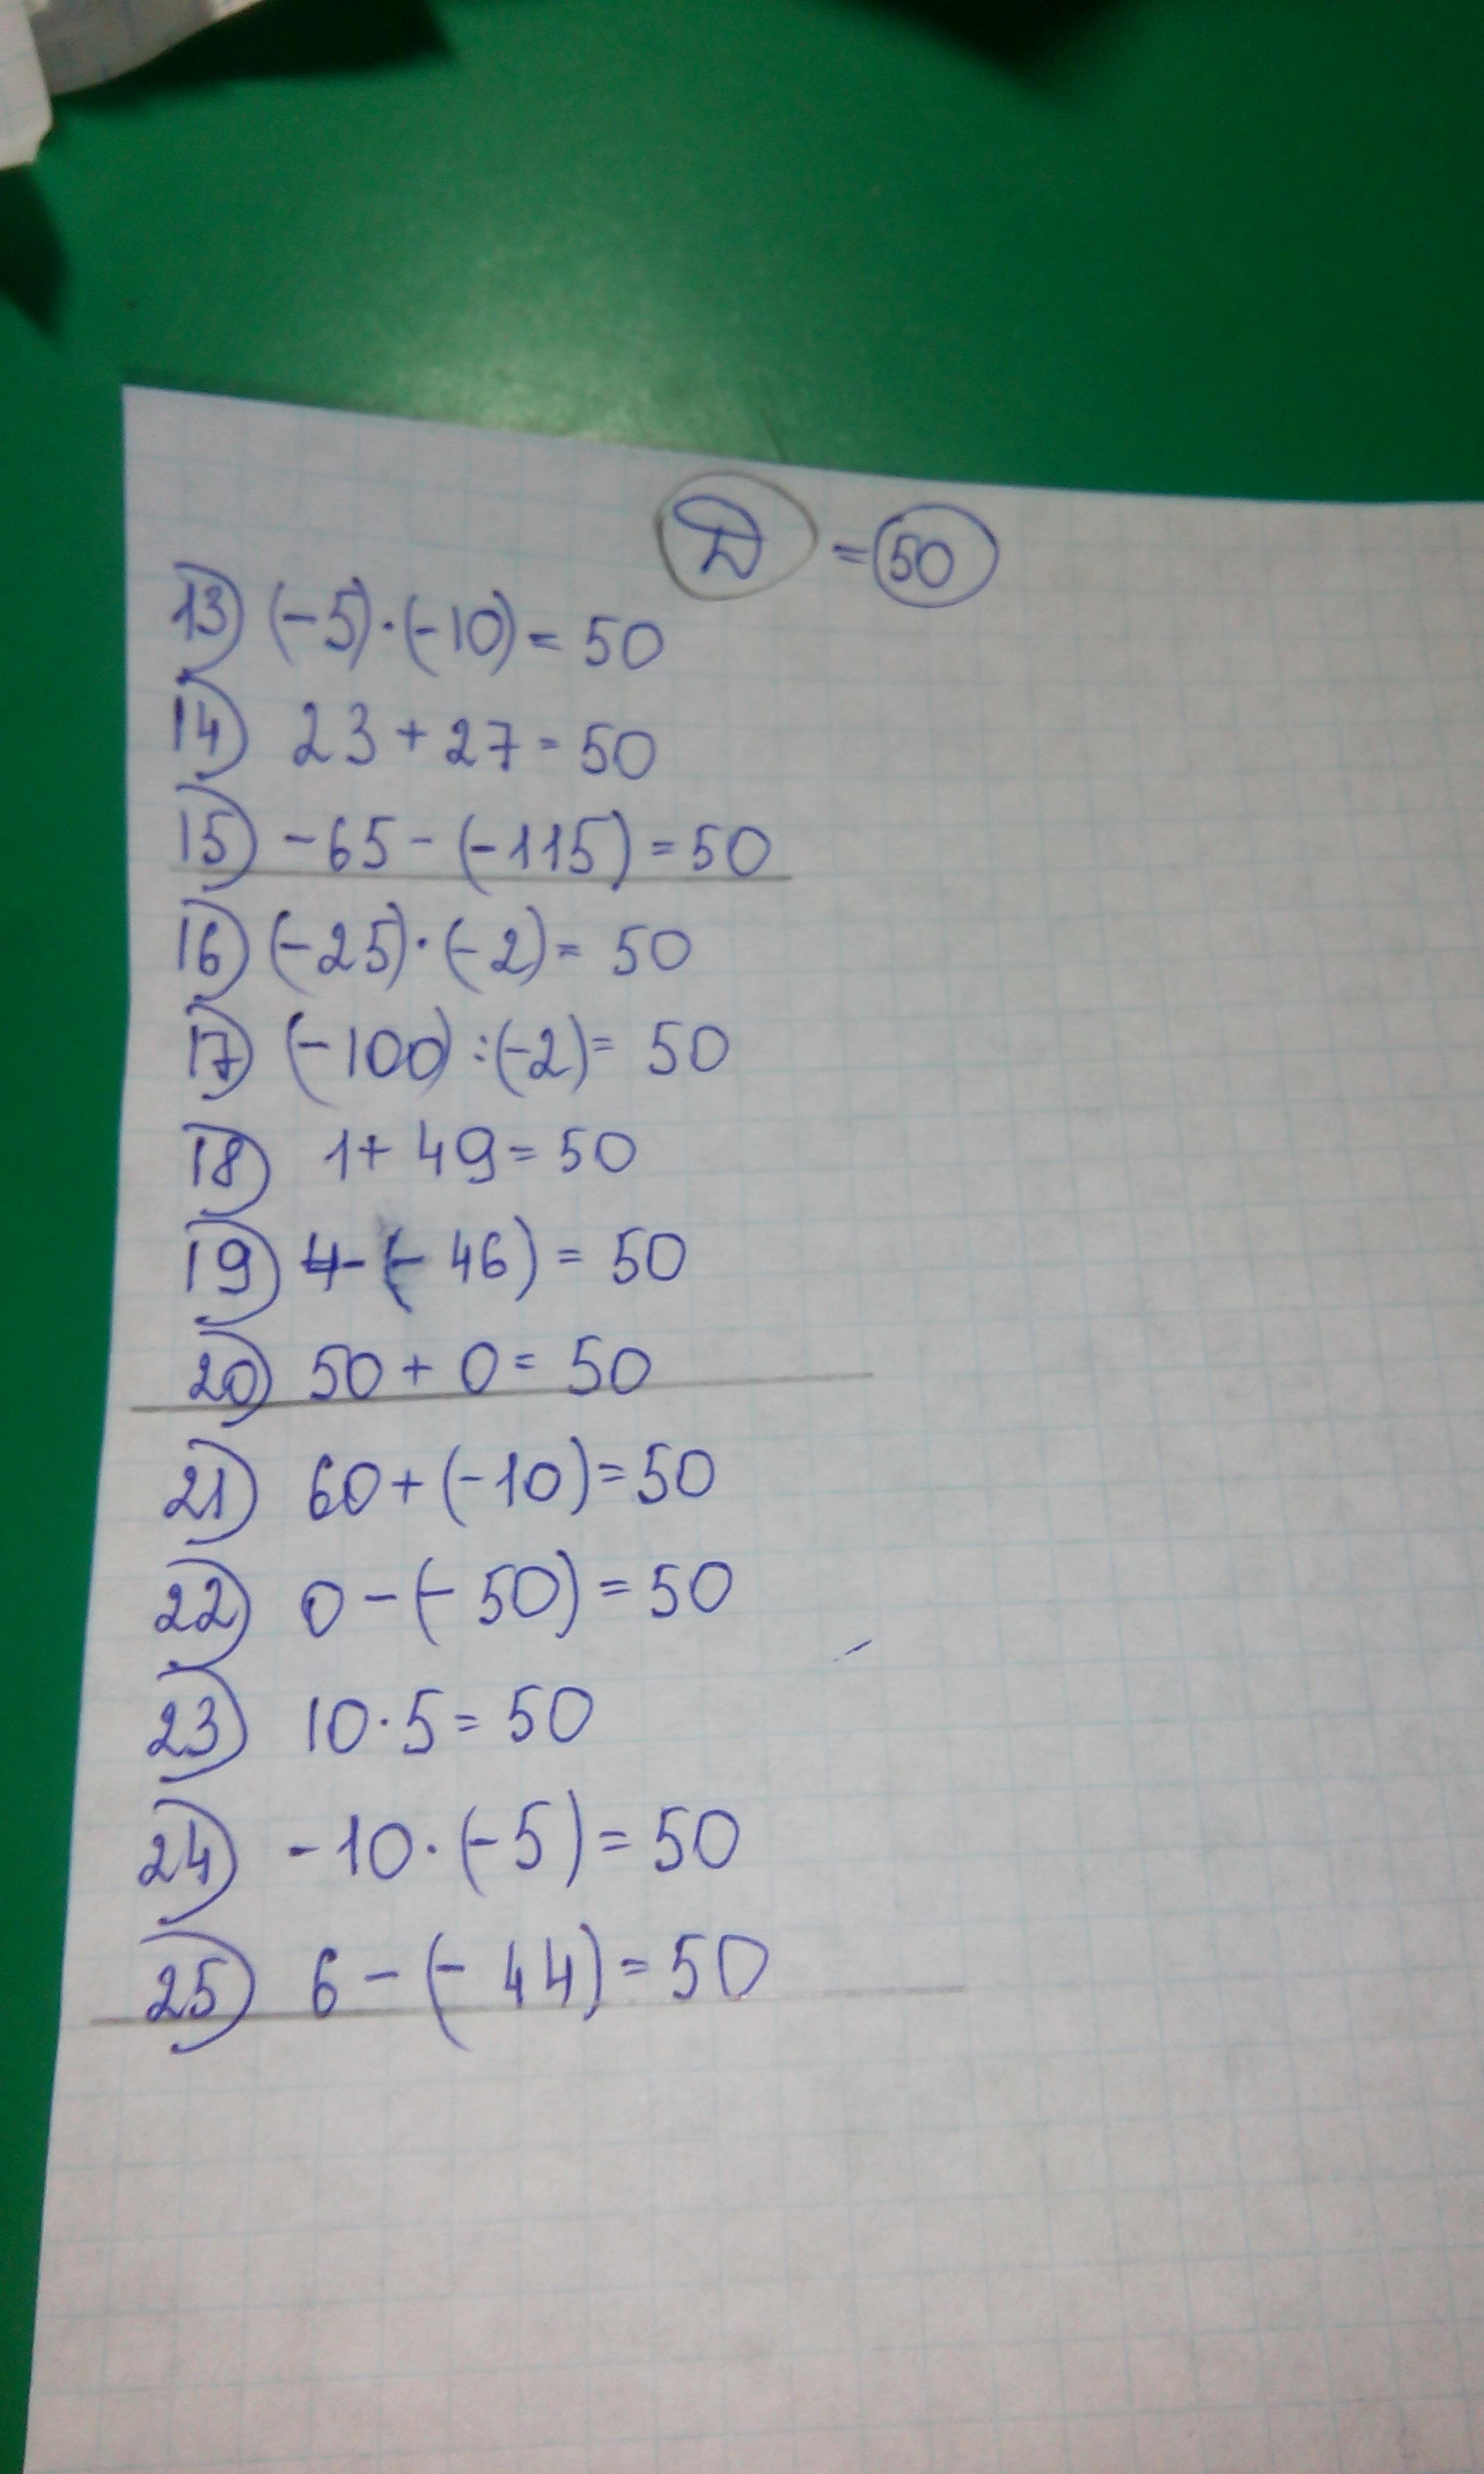 Д = 50
13) (-5)·(-10) = 50
14) 23 + 27 = 50
15) -65 - (-115) = 50
16) (-25)·(-2) = 50
17) (-100) : (-2) = 50
18) 1 + 49 = 50
19) 4 - (-46) = 50
20) 50 + 0 = 50
21) 60 + (-10) = 50
22) 0 - (-50) = 50
23) 10·5 = 50
24) -10·(-5) = 50
25) 6 - (-44) = 50